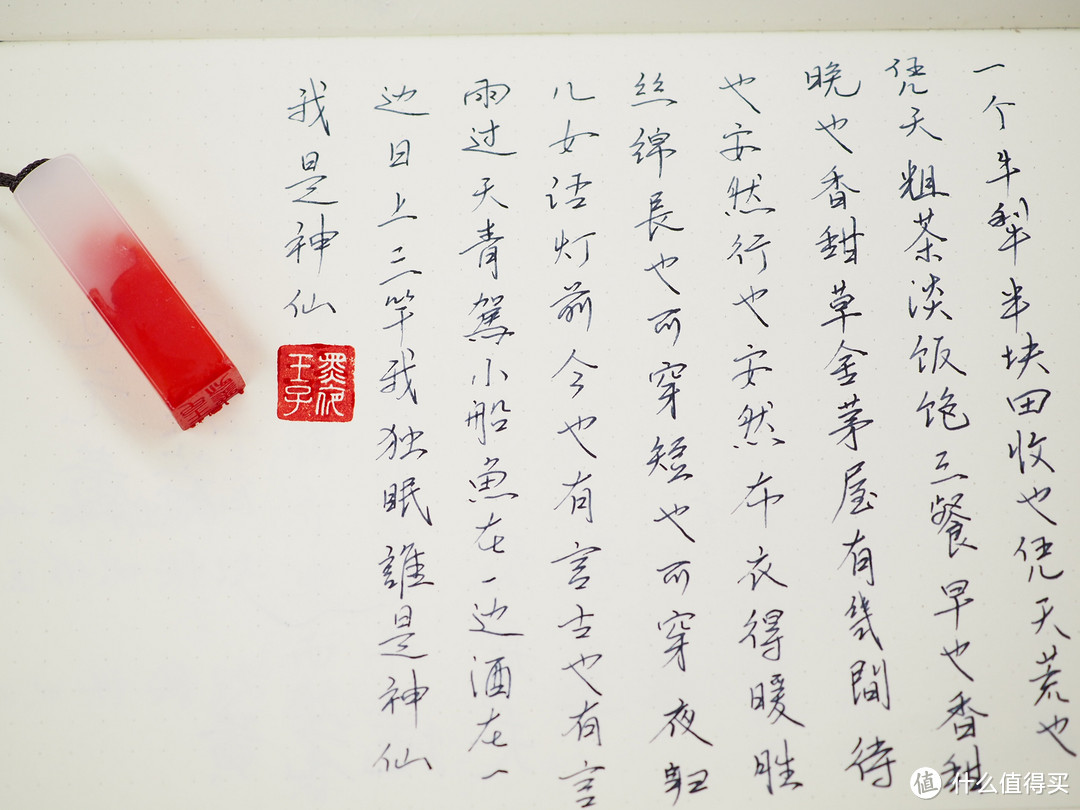 一个牛犁半块田收也凭天荒也
凭天粗茶淡饭饱三餐早也香甜
晚也香甜草舍茅屋有幾間待
也安然行也安然布衣得暖胜
絲绵長也可穿短也可穿夜归
儿女话灯前今也有言古也有言
雨过天青駕小船魚在一边酒在一
边日上三竿我独眠誰是神仙
我是神仙
王子
值 什么值得买